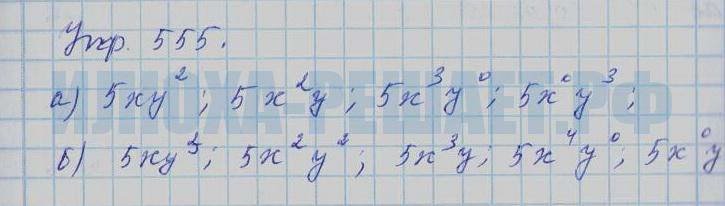 Упр. 555.
а) 5xy²; 5x²y; 5x³y⁰; 5x⁰y³;
б) 5xy³; 5x²y²; 5x³y; 5x⁴y⁰; 5x⁰y
ИЛЮХА-РЕШАЕТ.РФ